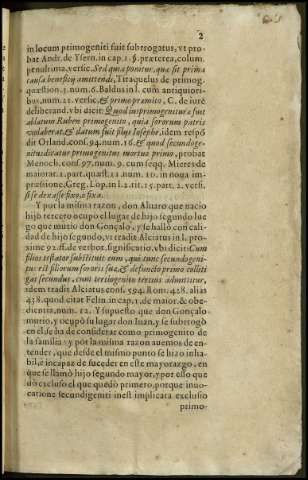 2
in locum primogeniti fuit subrrogatus, vt pro-
bat Andr. de Ysern. in cap. 1. §. præterea, colum.
penultima, versic. Sed qua ponitur, qua sit prima
causa beneficij amittendi, Tiraquelus de primog.
quæstion. 3. num. 6. Baldus in l. cum antiquiori-
bus, num. 21. versic. & primo præmito, C. de iure
deliberand. vbi dicit: Quod ius primogeniturae fuit
ablatum Ruben primogenito, quia sororum patris
violaberat, & datum fuit filijs Iosephi, idem respõ
dit Orland. conf. 94. num. 16. & quod secundoge-
nitus dicatur primogenitus mortuo primo, probat
Menoch. conf. 97. num. 9. cum seqq. Mieres de
maiorat. 2. part. quæst. 12. num. 10. in noua im-
præsione, Greg. Lop. in l. 2. tit. 15. part. 2. versi.
si se dexasse fixo, o fixa.
Y por la misma razon, don Aluaro que nacio
hijo tercero ocupo el lugar de hijo segundo lue
go que murio don Gonçalo, y se hallò con cali-
dad de hijo segundo, vt tradit Alciatus in l. pro-
xime 92. ff. de verbor. significatio. vbi dicit: Cum
filios testator substituit eum, qui tunc secundogeni-
tus est filiorum sororis suæ, & defuncto primo collitigat
secundus, eum tertiogenito tertius admittitur,
idem tradit Alciatus conf. 594. Rom. 428. alias
438. quod citat Felin. in cap. 1. de maior. & obe-
dientia, num. 12. Y supuesto que don Gonçalo
murio, y ocupò su lugar don Iuan, y se subrrogò
en el se ha de considerar como primogenito de
la familia: y por la misma razon auemos de en-
tender, que desde el mismo punto se hizo inha-
bil, è incapaz de suceder en este mayorazgo, en
que se llamò hijo segundo mayor, y por ello que
dò excluso el que quedò primero, porque inuo-
catione secundigeniti inest implicata exclusio
primo-